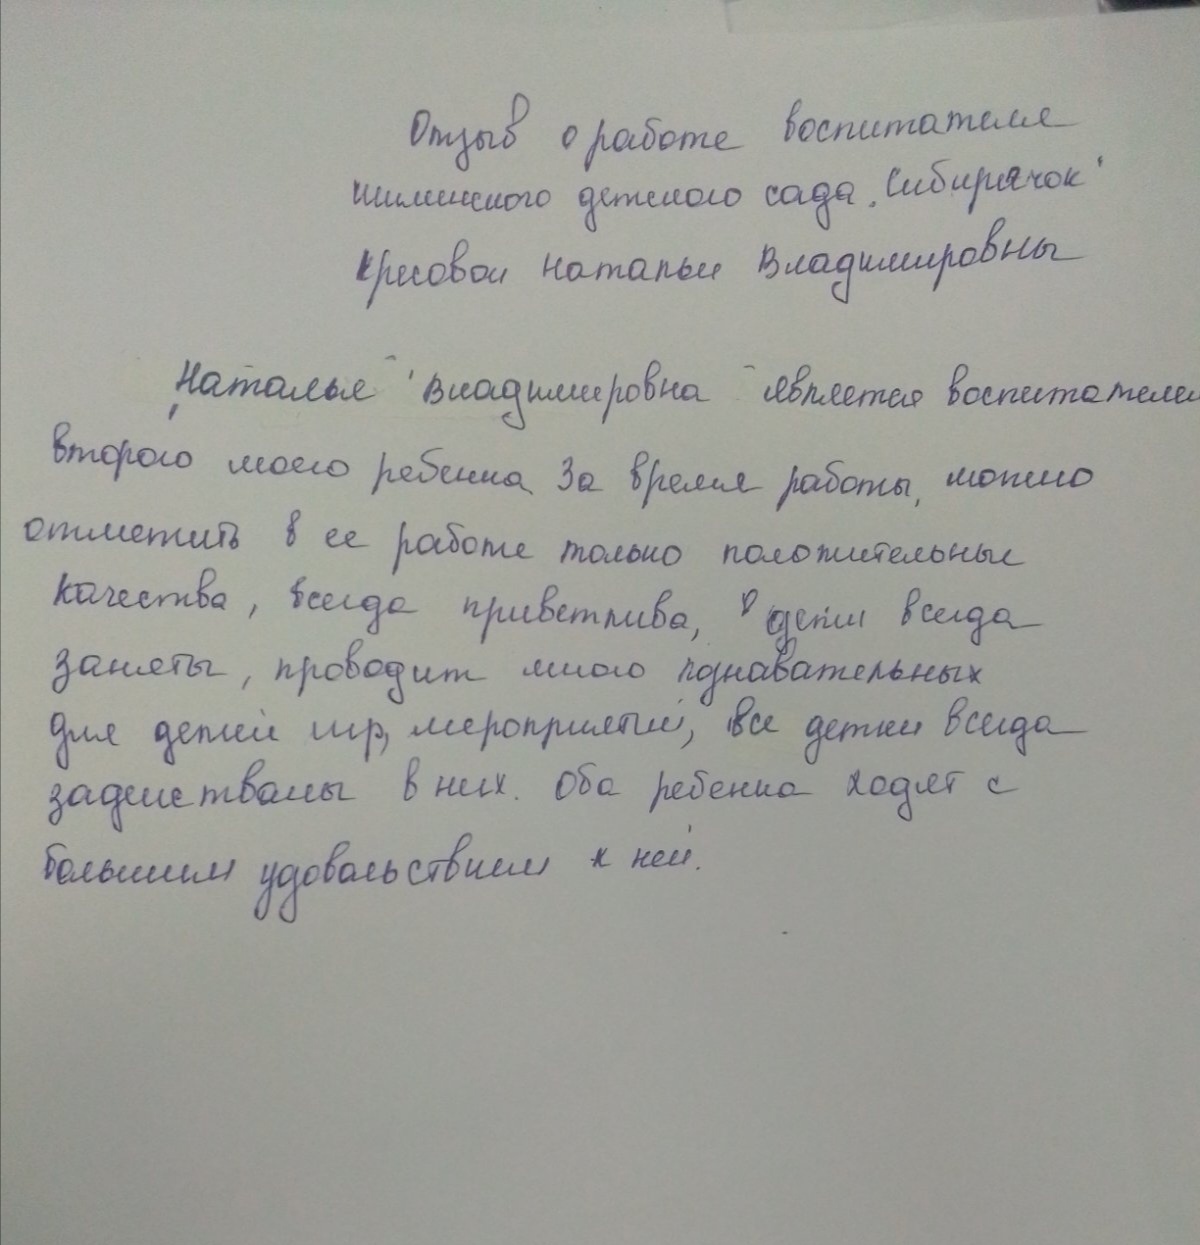 Отзыв о работе воспитателя
Шилинского детского сада "Сибирячок"
Наталья Владимировны
Наталья Владимировна является воспитателем
второго моего ребенка. За время работы, можно
отметить в ее работе только положительные
качества, всегда приветлива, дети всегда
заняты, проводит много познавательных
для детей игр, мероприятий, все детки всегда
задействованы в них. Оба ребенка ходят с
большим удовольствием к ней.